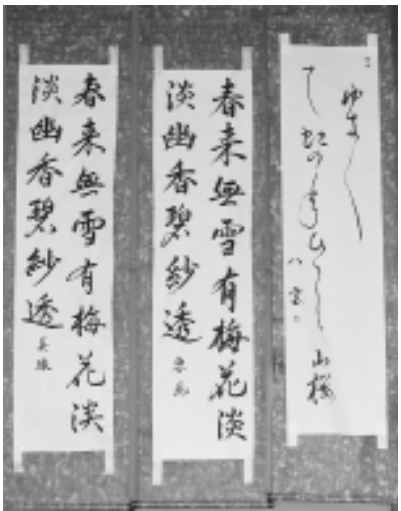 ゆさ〳〵
山桜
八雲
春来無雪有梅花淡
淡幽香碧紗透
春来無雪有梅花淡
淡幽香碧紗透